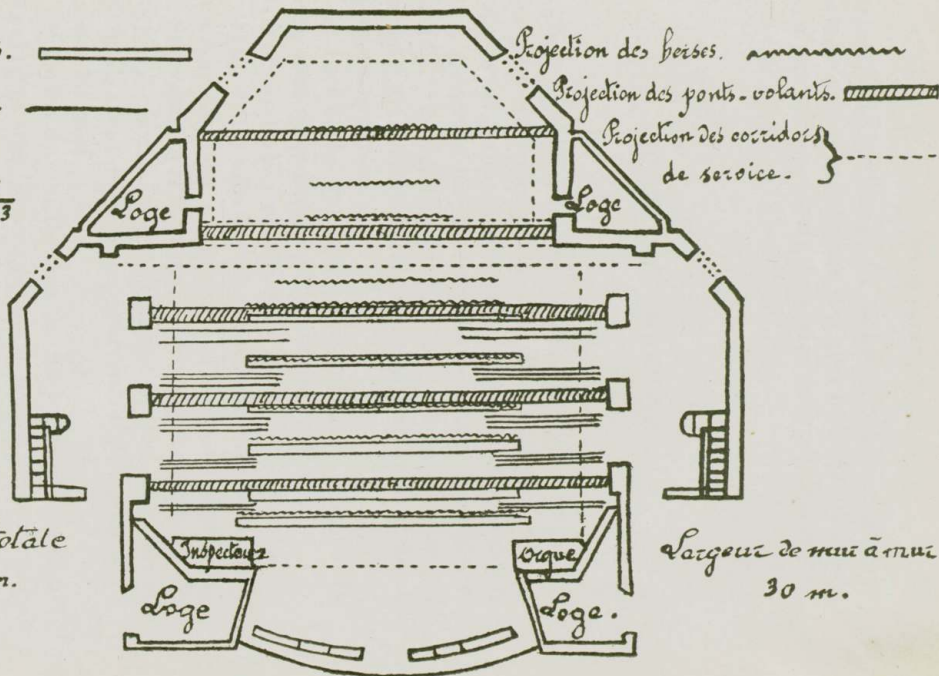 Projection des herses.
Projection des ponts-volants.
Projection des corridors
de service.
3
Loge
Loge
Inspecteur
Orgue
Loge
Loge.
totale
m.
Largeur de mur à mur
30 m.